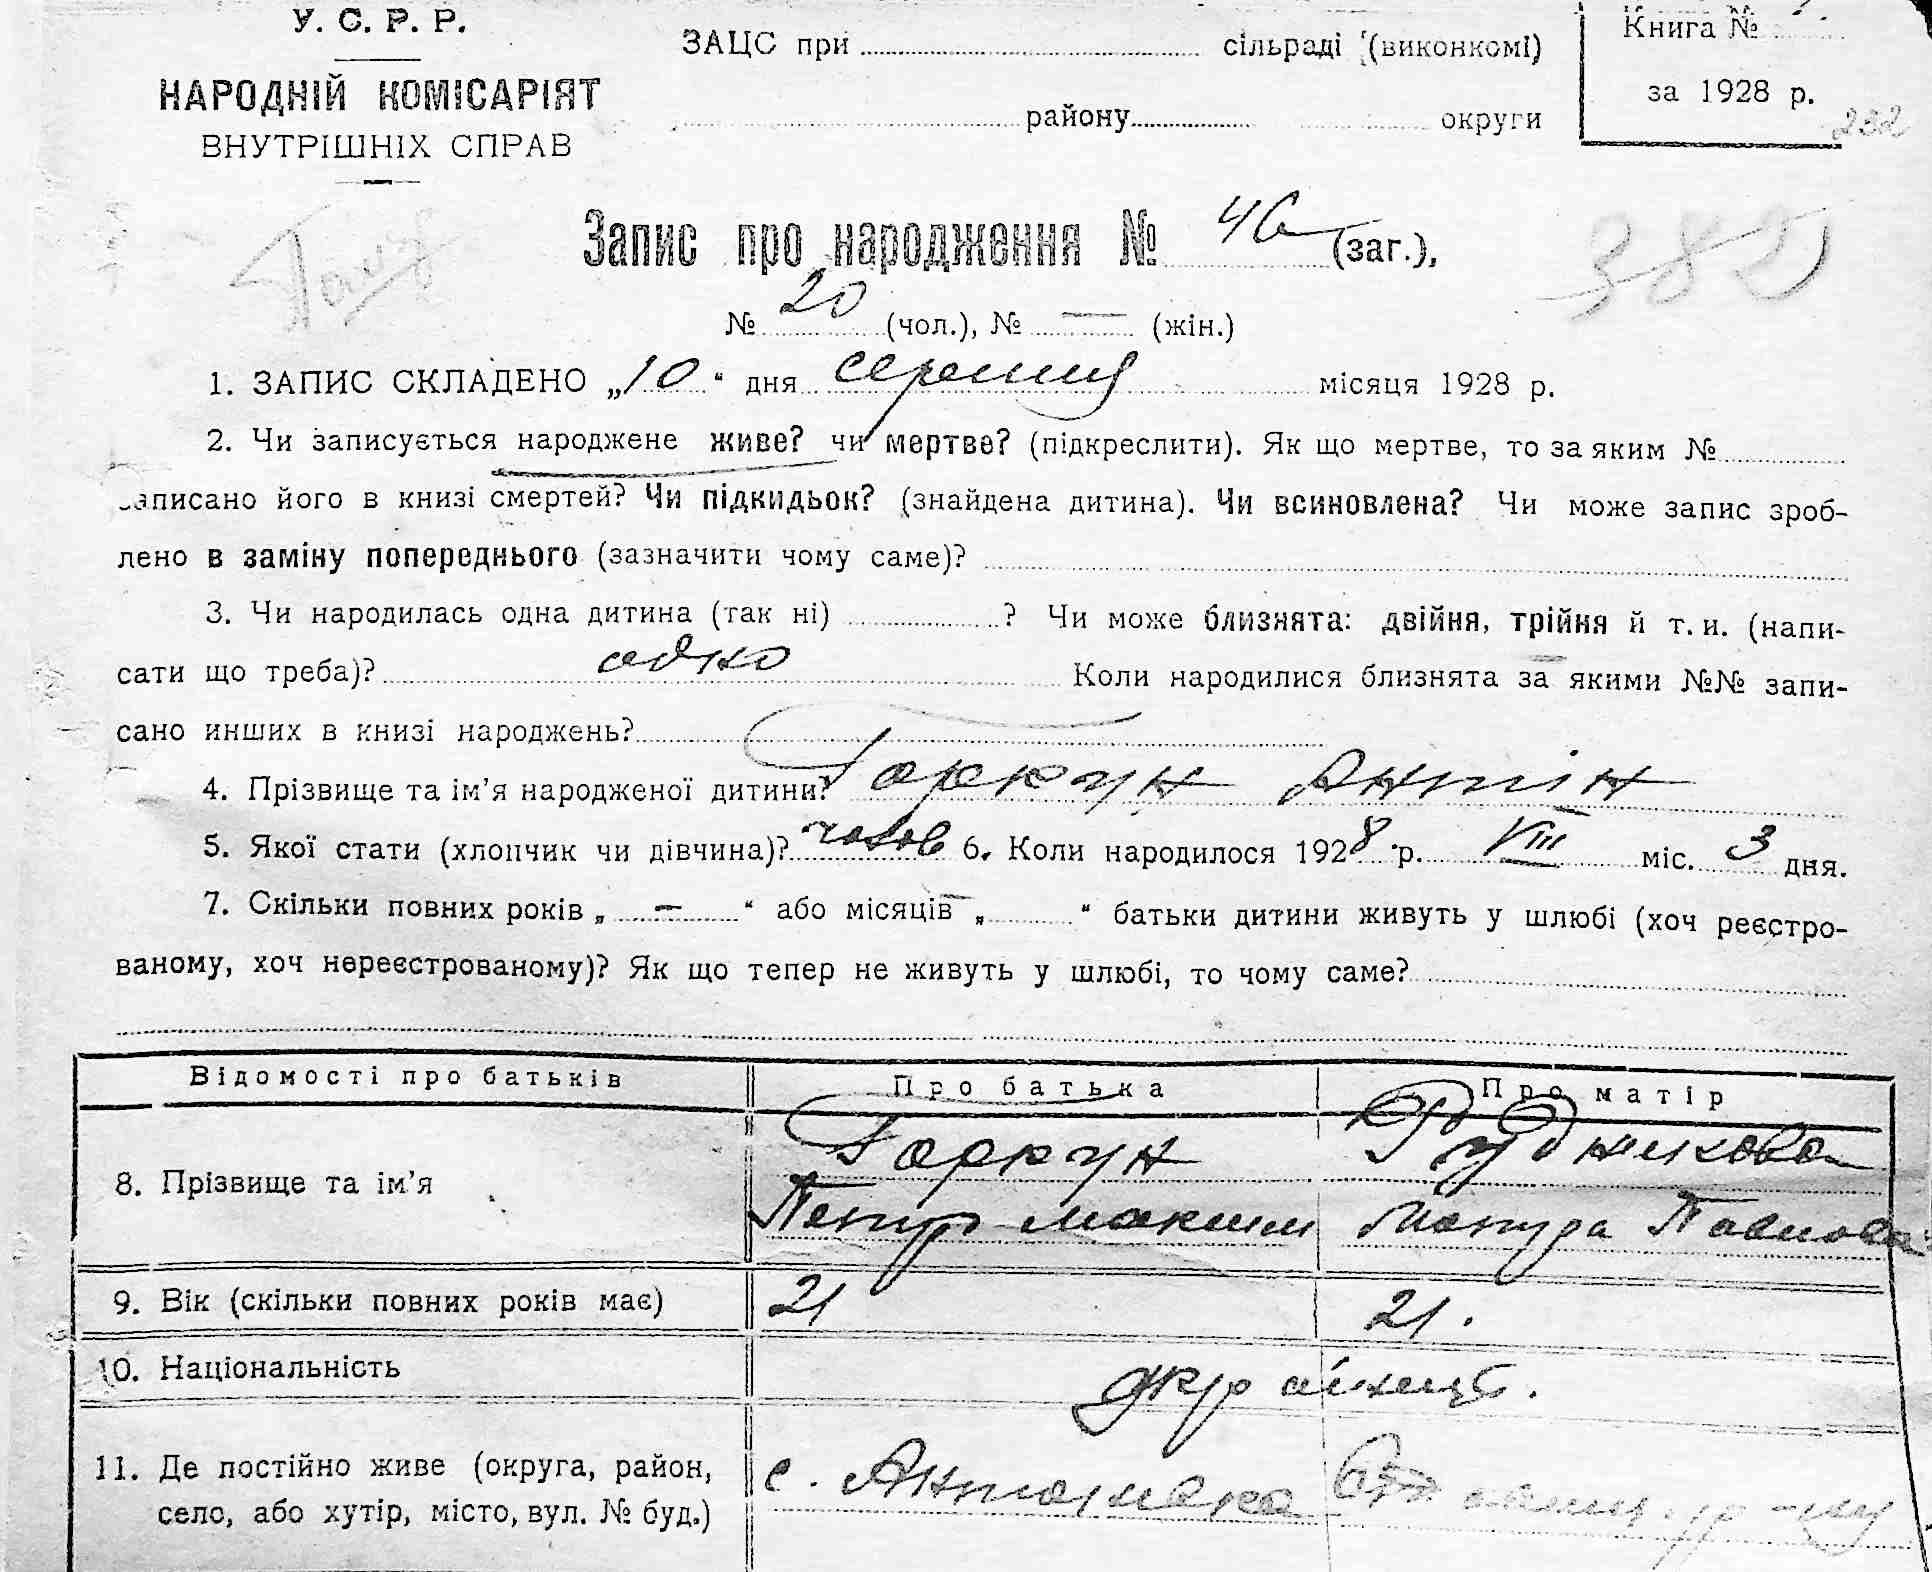 У. С. Р. Р.
НАРОДНІЙ КОМІСАРІЯТ
ВНУТРІШНІХ СПРАВ
ЗАЦС при сільраді (виконкомі)
району округи
Книга №
за 1928 р.
232
382
Запис про народження № 46 (заг.),
№ 20 (чол.), № — (жін.)
1. ЗАПИС СКЛАДЕНО „10“ дня серпня місяця 1928 р.
2. Чи записується народжене живе? чи мертве? (підкреслити). Як що мертве, то за яким №
записано його в книзі смертей? Чи підкидьок? (знайдена дитина). Чи всиновлена? Чи може запис зроб-
лено в заміну попереднього (зазначити чому саме)?
3. Чи народилась одна дитина (так ні) ? Чи може близнята: двійня, трійня й т. и. (напи-
сати що треба)? одно Коли народилися близнята за якими №№ запи-
сано инших в книзі народжень?
4. Прізвище та ім’я народженої дитини? Горкун Антін
5. Якої стати (хлопчик чи дівчина)? чолов 6. Коли народилося 1928 р. VIII міс. 3 дня.
7. Скільки повних років „ — “ або місяців „ “ батьки дитини живуть у шлюбі (хоч реєстро-
ваному, хоч нереєстрованому)? Як що тепер не живуть у шлюбі, то чому саме?
Відомості про батьків Про батька Про матір
8. Прізвище та ім’я Горкун Рудникова
Петро Максим Павлова
9. Вік (скільки повних років має) 21 21.
10. Національність українці.
11. Де постійно живе (округа, район, с. Антонівка
село, або хутір, місто, вул. № буд.)